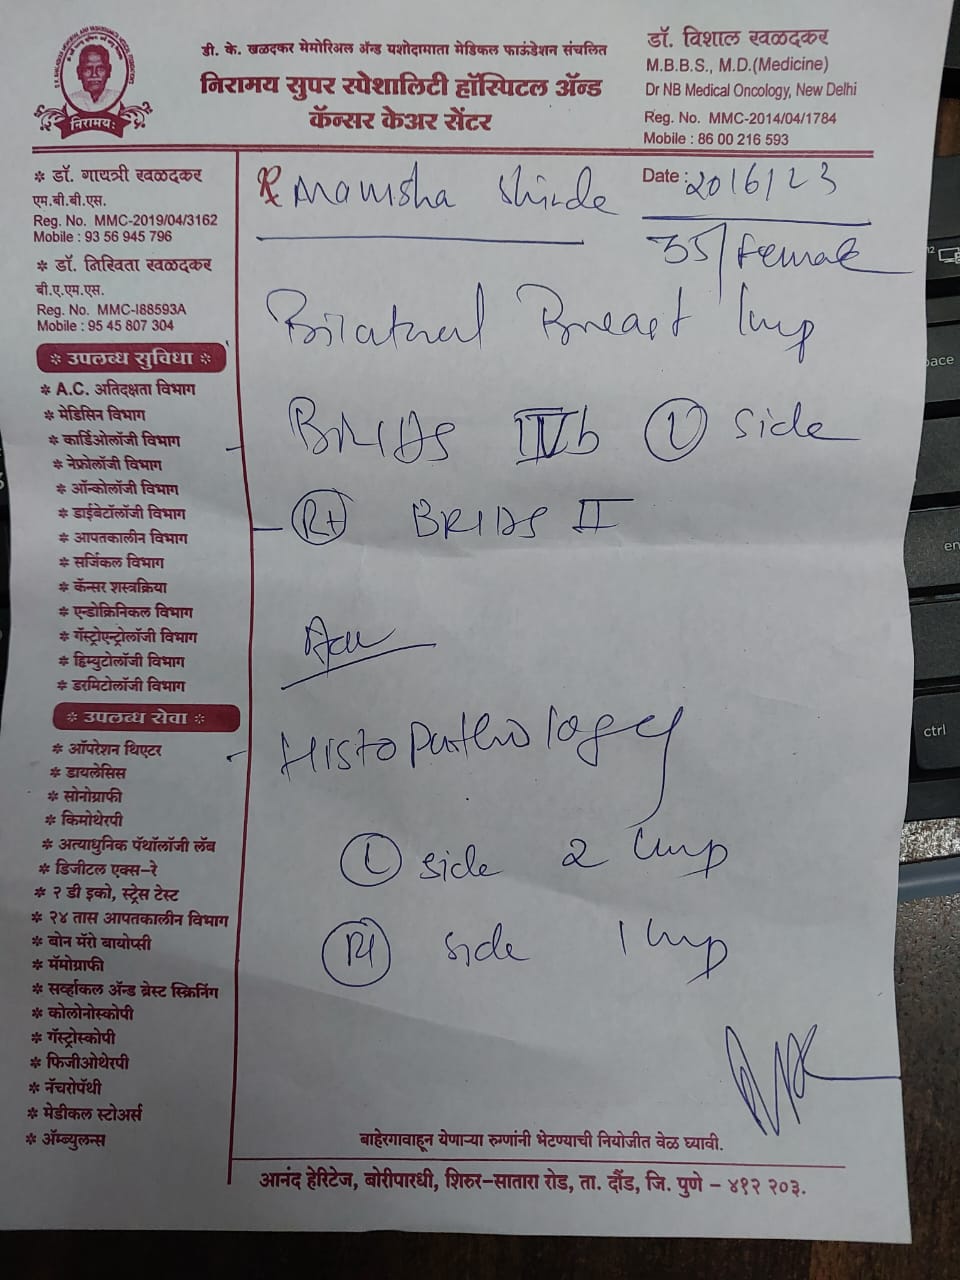 डी. के. खळदकर मेमोरिअल ॲन्ड यशोदामाता मेडिकल फाऊंडेशन संचलित
निरामय सुपर स्पेशालिटी हॉस्पिटल ॲन्ड
कॅन्सर केअर सेंटर
निरामयः
डॉ. विशाल खळदकर
M.B.B.S., M.D.(Medicine)
Dr NB Medical Oncology, New Delhi
Reg. No. MMC-2014/04/1784
Mobile : 86 00 216 593
* डॉ. गायत्री खळदकर
एम.बी.बी.एस.
Reg. No. MMC-2019/04/3162
Mobile : 93 56 945 796
* डॉ. निखिता खळदकर
बी.ए.एम.एस.
Reg. No. MMC-I88593A
Mobile : 95 45 807 304
* उपलब्ध सुविधा *
* A.C. अतिदक्षता विभाग
* मेडिसिन विभाग
* कार्डिओलॉजी विभाग
* नेफ्रोलॉजी विभाग
* ऑन्कोलॉजी विभाग
* डाईबेटॉलॉजी विभाग
* आपतकालीन विभाग
* सर्जिकल विभाग
* कॅन्सर शस्त्रक्रिया
* एन्डोक्रिनिकल विभाग
* गॅस्ट्रोएन्ट्रोलॉजी विभाग
* हिम्युटोलॉजी विभाग
* डरमिटोलॉजी विभाग
* उपलब्ध सेवा *
* ऑपरेशन थिएटर
* डायलेसिस
* सोनोग्राफी
* किमोथेरपी
* अत्याधुनिक पॅथॉलॉजी लॅब
* डिजीटल एक्स-रे
* २ डी इको, स्ट्रेस टेस्ट
* २४ तास आपतकालीन विभाग
* बोन मॅरो बायोप्सी
* मॅमोग्राफी
* सर्व्हाकल ॲन्ड ब्रेस्ट स्क्रिनिंग
* कोलोनोस्कोपी
* गॅस्ट्रोस्कोपी
* फिजीओथेरपी
* नॅचरोपॅथी
* मेडीकल स्टोअर्स
* ॲम्ब्युलन्स
Rx Manisha Shinde
Date : 20/6/23
35/female
Bilateral Breast lump
BRIDS IVb (L) side
- (Rt) BRIDS II
Adv
- Histopathology
(L) side 2 lump
(Rt) side 1 lump
बाहेरगावाहून येणाऱ्या रुग्णांनी भेटण्याची नियोजीत वेळ घ्यावी.
आनंद हेरिटेज, बोरीपारधी, शिरुर-सातारा रोड, ता. दौंड, जि. पुणे - ४१२ २०३.
ctrl